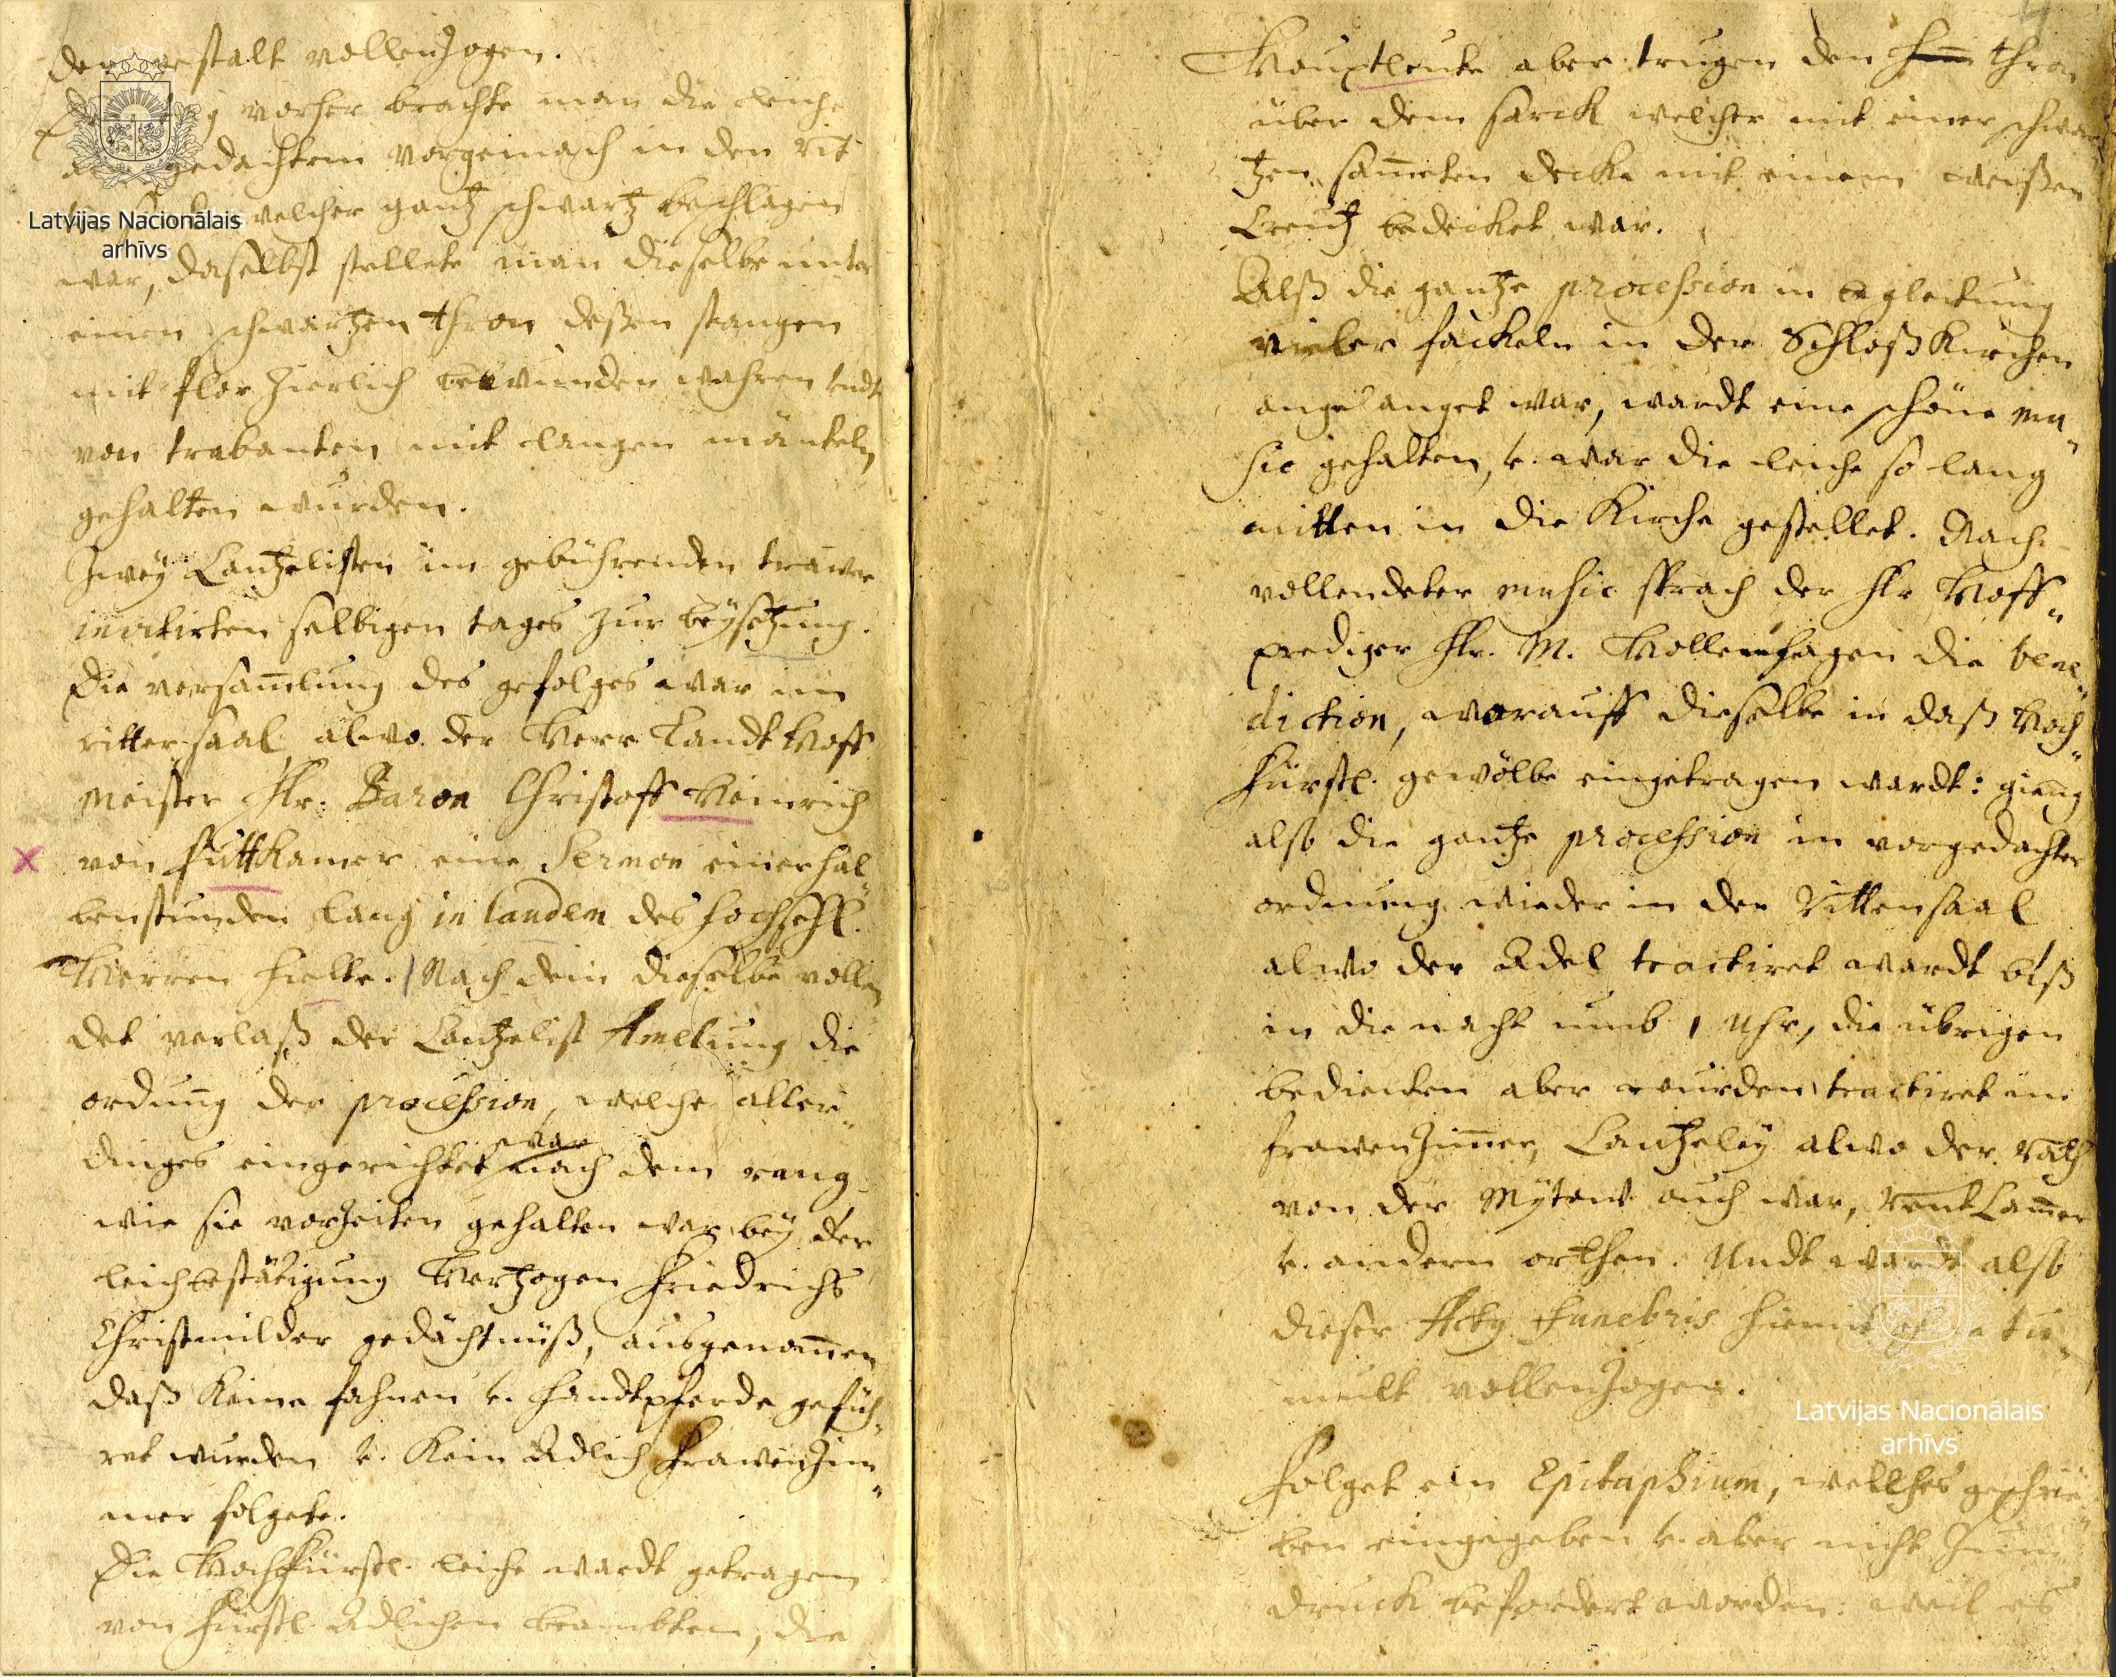 der gestalt vollenzogen.
vorher brachte man die leiche
gedachtem Vorgemach in den rit
welcher gantz schwartz beschlagen
war, daselbst stellete man dieselbe unter
einen schwartzen thron deßen stangen
mit flor zierlich bewunden wahren undt
von trabanten mit langen mänteln
gehalten wurden.
Zwey Cantzelisten im gebührenden trawer
invitirten selbigen tages zur beysetzung.
Die versam̄lung des gefolges war im
rittersaal alwo der Herr Landt Hoff
meister Hr. Baron Christoff Heinrich
von Puttkamer eine Sermon einer hal
benstunden lang in laudem des hochseel.
Herren hielte. Nach dem dieselbe vollen
det verlaß der Cantzelist Amelung die
ordnung der procession, welche aller„
dinges eingerichtet war nach dem rang
wie sie vorzeiten gehalten war bey der
leichbestätigung Hertzogen Friedrichs
Christmilder gedächtnüß, ausgenom̄en
daß keine fahnen v. handtpferde gefüh„
ret wurden v. kein Adlich Frawenzim„
mer folgete.
Die Hochfürstl. leiche wardt getragen
von Fürstl. Adlichen beambten, die
Hauptleute aber trugen den thron
über dem sarck welcher mit einer schwar
tzen sam̄eten decke mit einem weißen
Creutz bedecket war.
Alß die gantze procession in begleitung
vieler fackeln in der Schloßkirchen
angelanget war, wardt eine schöne mu„
sic gehalten, v. war die leiche so lang
mitten in die Kirche gestellet. Nach
vollendeter music sprach der Hr Hoff„
prediger Hr. M. Hollenhagen die bene„
diction, worauff dieselbe in daß Hoch„
Fürstl. gewölbe eingetragen wardt: gieng
also die gantze procession in vorgedachter
ordnung wieder in den Rittersaal
alwo der Adel tractiret wardt biß
in die nacht umb 1 Uhr, die übrigen
bedienten aber wurden tractiret im
frawenzim̄er, Cantzeley alwo der Rath
von der Mytow auch war, RentCam̄er
v. andern orthen. Undt wardt also
dieser Actus funebris hiemit ohne tu„
mult vollenzogen.
Folget ein Epitaphium, welches geschrie„
ben eingegeben v. aber nicht zum
druck befordert worden: weil es
Latvijas Nacionālais
arhīvs
Latvijas Nacionālais
arhīvs